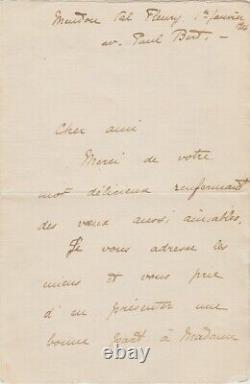 Meudon Val Fleury, 1er janvier
av. Paul Bert. -
Cher ami
Merci de votre
mot délicieux renfermant
des vœux aussi aimables.
Je vous adresse les
miens et vous prie
d'en présenter une
bonne part à Madame